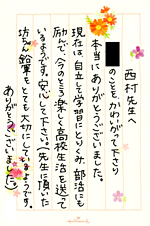 西村先生へ
のことをかわいがって下さり
本当にありがとうございました。
現在は、自立して学習にとりくみ、部活にも
励んで、今のところ楽しく高校生活を送って
いるようです。安心して下さい。(先生に頂いた
坊ちゃん鉛筆をとても大切にしているようです。
ありがとうございました。)